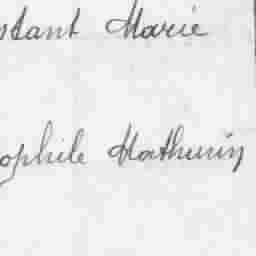 stant Marie
ophile Mathurin